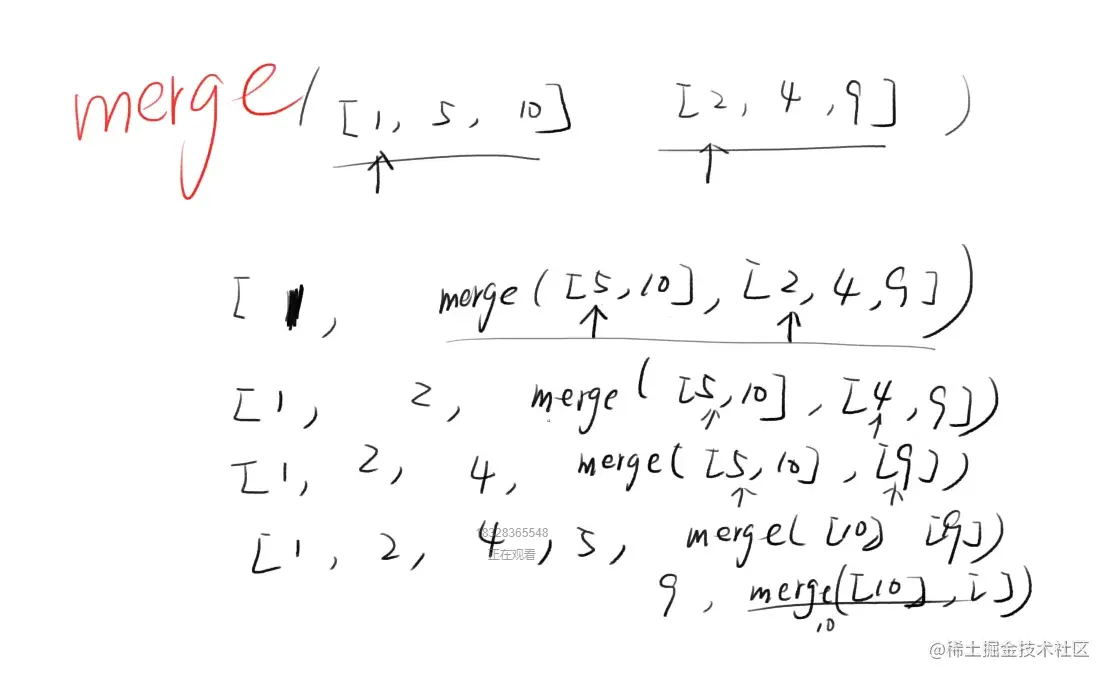 merge( [1, 5, 10] [2, 4, 9] )
[ 1, merge([5,10], [2,4,9])
[1, 2, merge([5,10],[4,9])
[1, 2, 4, merge([5,10],[9])
[1, 2, 4, 5, merge([10] [9])
18328365548
正在观看
9, merge([10],[])
10
@稀土掘金技术社区